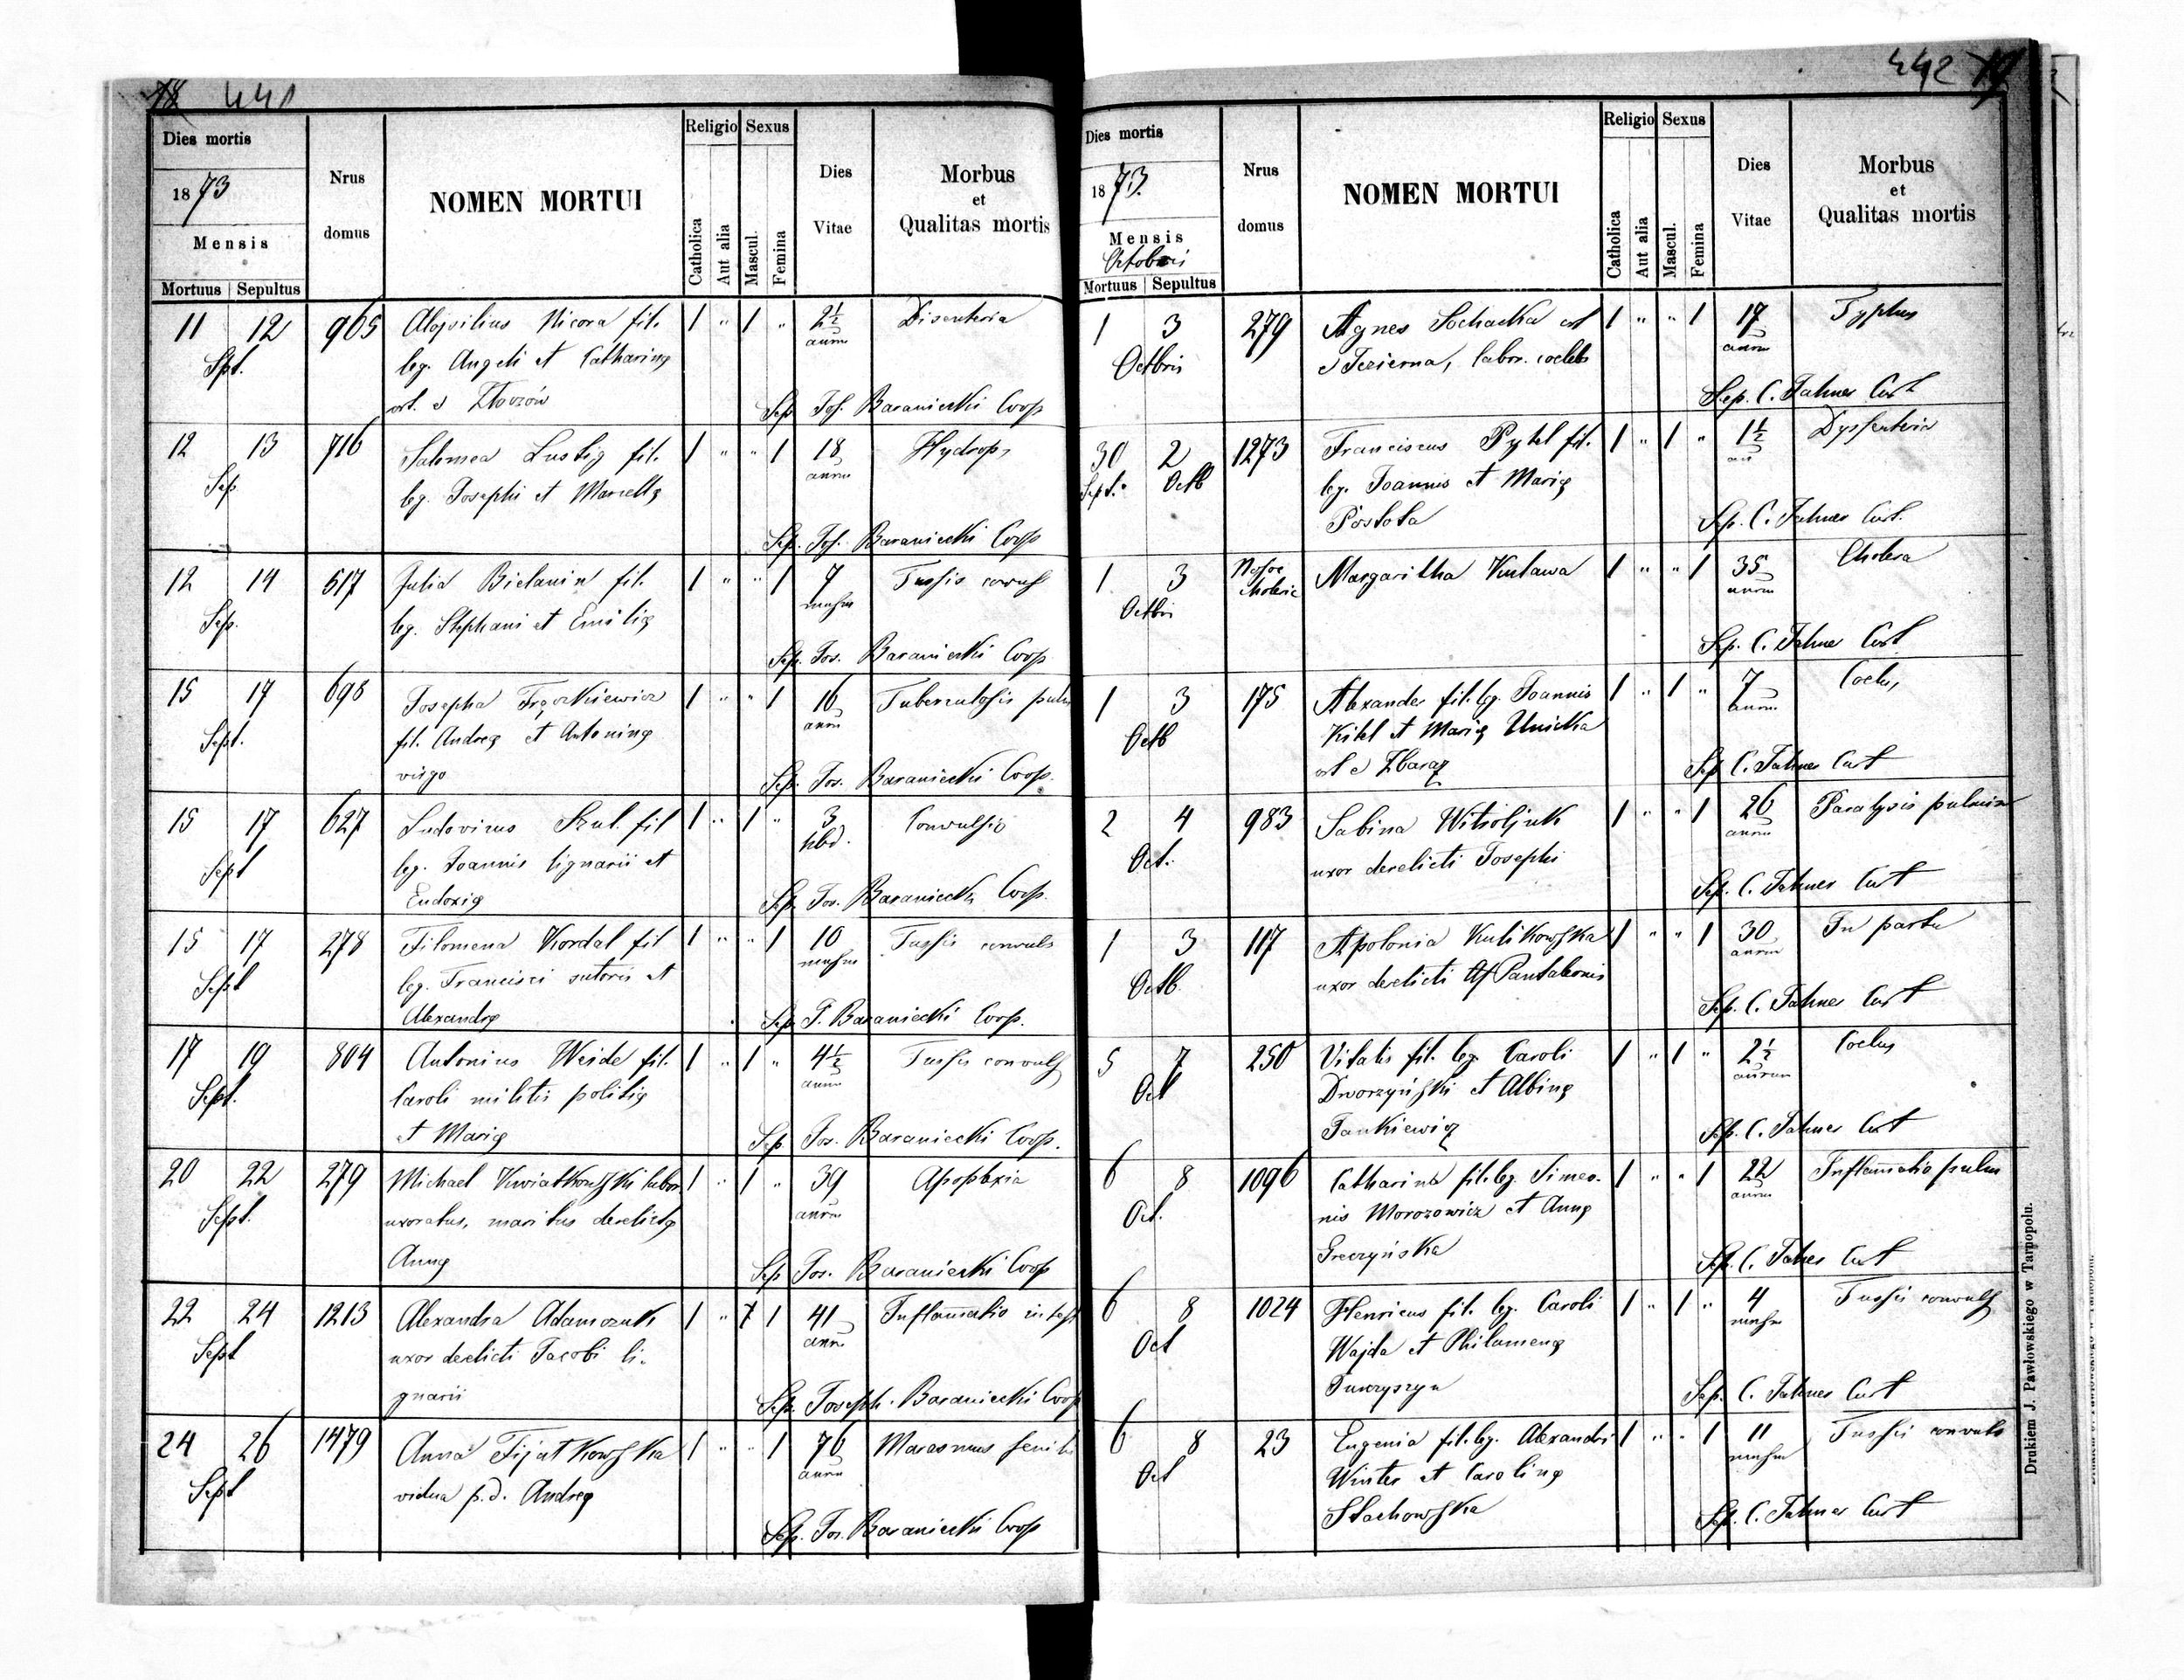 78 441
Dies mortis
1873
Mensis
Mortuus Sepultus
Nrus domus
NOMEN MORTUI
Religio Sexus
Catholica Aut alia Mascul. Femina
Dies Vitae
Morbus et Qualitas mortis
11 12 965 Aloysilius Nicora fil. 1 " 1 " 2½ Disenteria
Spt. leg. Angeli et Catharinę anm
ort. e Złoczów Sep Jos. Baraniecki Coop
12 13 716 Salomea Lustig fil. 1 " " 1 18 Hydrops
Sep leg. Josephi et Marcellę anm
Sep. Jos. Baraniecki Coop
12 14 517 Julia Bielanin fil. 1 " " 1 7 Tussis convuls
Sep. leg. Stephani et Emilię mensm
Sep. Jos. Baraniecki Coop
15 17 698 Josepha Frączkiewicz 1 " " 1 16 Tuberculosis pulm
Sept. fil. Andreę et Antoninę anm
virgo Sep. Jos. Baraniecki Coop.
15 17 627 Ludovicus Szul. fil 1 " 1 " 3 Convulsio
Sept leg. Joannis lignarii et hbd.
Eudoxię Sep. Jos. Baraniecki Coop.
15 17 278 Filomena Kordal fil 1 " " 1 10 Tussis convuls
Sept leg. Francisci sutoris et mensm
Alexandrę Sep J. Baraniecki Coop.
17 19 804 Antonius Weide fil. 1 " 1 " 4½ Tussis convuls
Sept. Caroli militis politię anm
et Marię Sep Jos. Baraniecki Coop.
20 22 279 Michael Kwiatkowski labor. 1 " 1 " 39 Apoplexia
Sept. uxoratus, maritus derelictę anm
Annę Sep Jos. Baraniecki Coop
22 24 1213 Alexandra Adamczuk 1 " 1 1 41 Inflamatio intest
Sept uxor derelicti Jacobi li- anm
gnarii Sep. Joseph. Baraniecki Coop
24 26 1479 Anna Fijałkowska 1 " " 1 76 Marasmus senilis
Sept vidua p.d. Andreę anm
Sep. Jos. Baraniecki Coop
442 79
Dies mortis
1873.
Mensis
Octobris
Mortuus Sepultus
Nrus domus
NOMEN MORTUI
Religio Sexus
Catholica Aut alia Mascul. Femina
Dies Vitae
Morbus et Qualitas mortis
1 3 279 Agnes Sochacka ort 1 " " 1 17 Typhus
Octbris e Jezierna, labor. coelebs anm
Sep. C. Fahner Curt
30 2 1273 Franciscus Pytel fil. 1 " 1 " 1½ Dysenteria
Sept. Octb leg. Joannis et Marię
Postoła Sep. C. Fahner Curt.
1 3 Margaritha Kulawa 1 " " 1 35 Cholera
Octbri anm
Sep. C. Fahner Curt
1 3 175 Alexander fil. leg. Joannis 1 " 1 " 7
Octb Kitel et Marię Unicka anm
ort e Zbaraz Sep C. Fahner Curt
2 4 983 Sabina Witwoljuk 1 " " 1 26 Paralysis pulmon
Oct. uxor derelicti Josephi anm
Sep. C. Fahner Curt
1 3 117 Apolonia Kulikowska 1 " " 1 30 In partu
Octb uxor derelicti Pantaleonis anm
Sep. C. Fahner Curt
5 7 250 Vitalis fil. leg. Caroli 1 " 1 " 2½
Oct Dworzyński et Albinę annm
Jankiewicz Sep. C. Fahner Curt
6 8 1096 Catharina fil. leg. Simeo- 1 " " 1 22 Inflamatio pulm
Oct. nis Morozowicz et Annę anm
Greczyńska Sep. C. Fahner Curt
6 8 1024 Henricus fil. leg. Caroli 1 " 1 " 4 Tussis convuls
Oct Wajda et Philomenę mensm
Sep. C. Fahner Curt
6 8 23 Eugenia fil. leg. Alexandri 1 " " 1 11 Tussis convuls
Oct Winter et Carolinę mensm
Stachowska Sep. C. Fahner Curt
Drukiem J. Pawłowskiego w Tarnopolu.